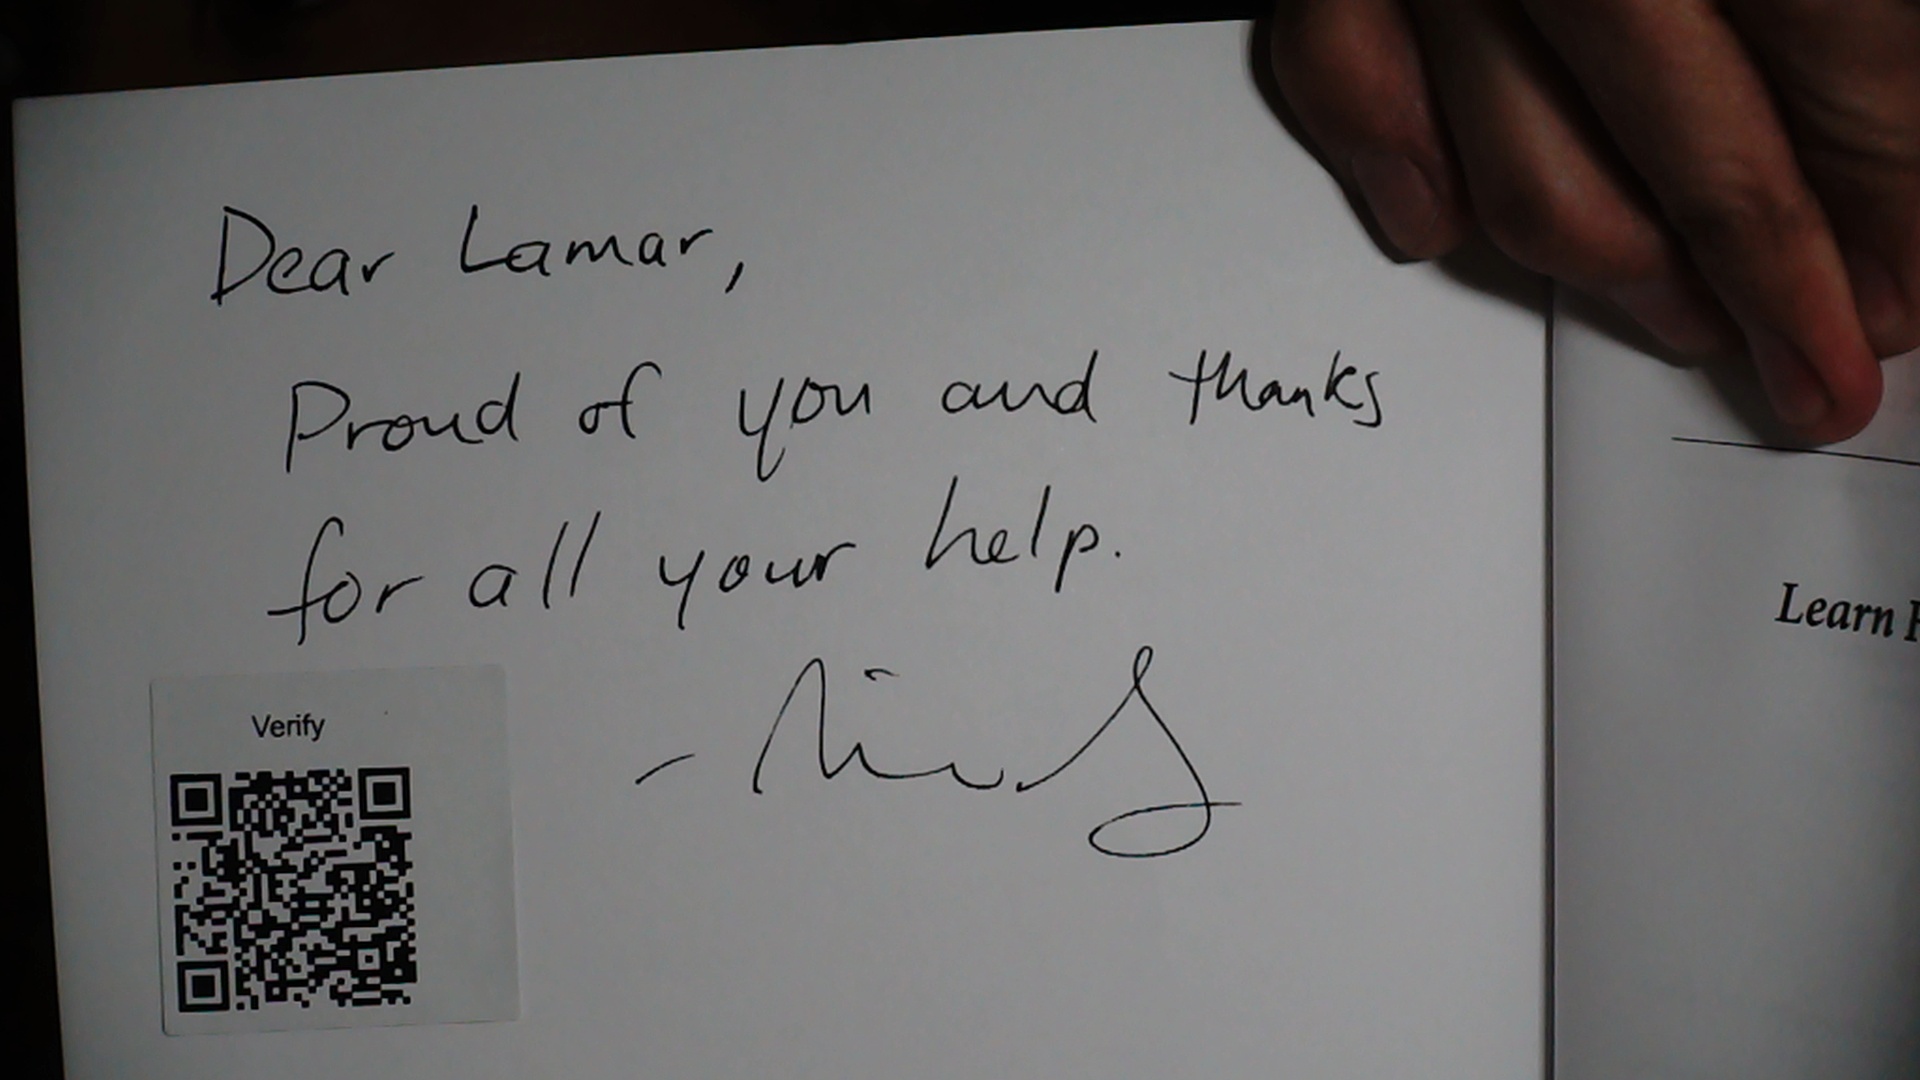 Dear Lamar,
Proud of you and thanks
for all your help.
Verify
Learn